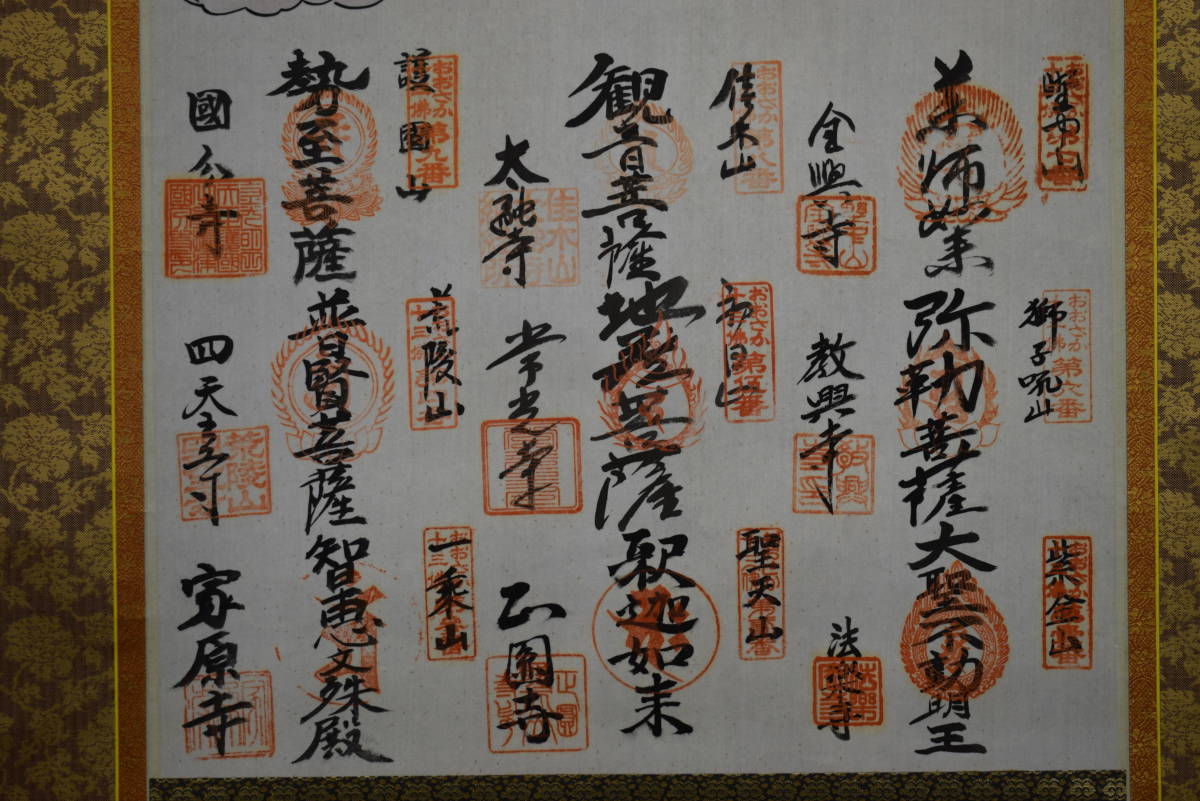 埜中山
獅子吼山
紫金山
薬師如来
弥勒菩薩
大聖不動明王
全興寺
教興寺
法樂寺
佳木山
初日山
聖天山
観音菩薩
地蔵菩薩
釈迦如来
太融寺
常光寺
正圓寺
護國山
荒陵山
一乗山
勢至菩薩
普賢菩薩
智恵文殊殿
國分寺
四天王寺
家原寺
おおさか第六番
おおさか第八番
おおさか第五番
おおさか第九番